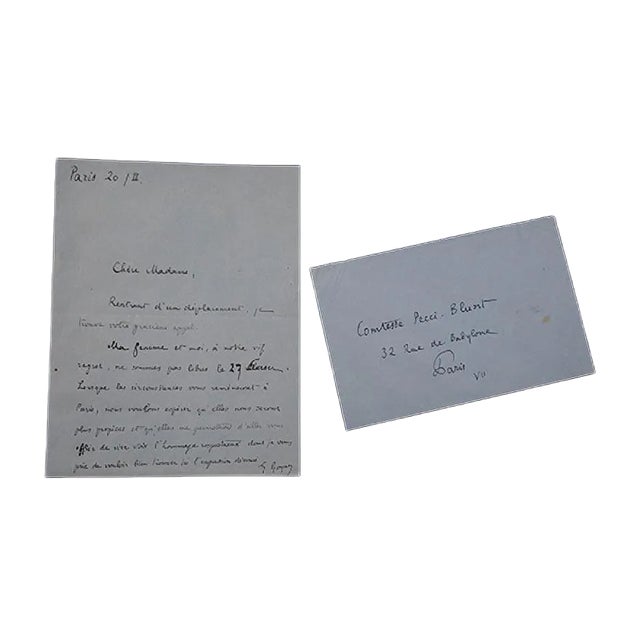 Paris 20/II.
Chère Madame,
Rentrant d'un déplacement, je
trouve votre gracieux appel.
Ma femme et moi, à notre vif
regret, ne sommes pas libres le 27
Lorsque les circonstances vous ramèneront à
Paris, nous voulons espérer qu'elles nous seront
plus propices et qu'elles me permettront d'aller vous
offrir de vive voix l'hommage respectueux dont je vous
prie de vouloir bien trouver ici l'expression
Comtesse Pecci-Blunt
32 Rue de Babylone
Paris
VII